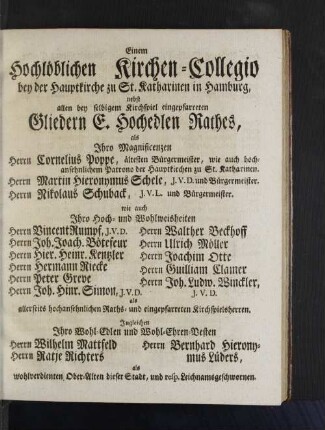 Einem
Hochlöblichen Kirchen-Collegio
bey der Hauptkirche zu St. Katharinen in Hamburg,
nebst
allen bey selbigem Kirchspiel eingepfarreten
Gliedern E. Hochedlen Rathes,
als
Ihro Magnificenzen
Herrn Cornelius Poppe, ältesten Bürgermeister, wie auch hoch-
ansehnlichem Patrono der Hauptkirchen zu St. Katharinen.
Herrn Martin Hieronymus Schele, J.V.D. und Bürgermeister.
Herrn Nikolaus Schuback, J.V.L. und Bürgermeister.
wie auch
Ihro Hoch- und Wohlweisheiten
Herrn Vincent Rumpf, J.V.D.
Herrn Joh. Joach. Bötefeur
Herrn Hier. Henr. Kentzler
Herrn Hermann Riecke
Herrn Peter Greve
Herrn Joh. Hinr. Simon, J.V.D.
Herrn Walther Beckhoff
Herrn Ulrich Möller
Herrn Joachim Otte
Herrn Guilliam Clamer
Herrn Joh. Ludw. Winckler,
J. V. D.
als
allerseits hochansehnlichen Raths- und eingepfarreten Kirchspielsherren.
Imgleichen
Ihro Wohl-Edlen und Wohl-Ehren-Vesten
Herrn Wilhelm Mattfeld
Herrn Ratje Richters
Herrn Bernhard Hierony-
mus Lüders,
als
wohlverdienten Ober-Alten dieser Stadt, und resp. Leichnamsgeschwornen.